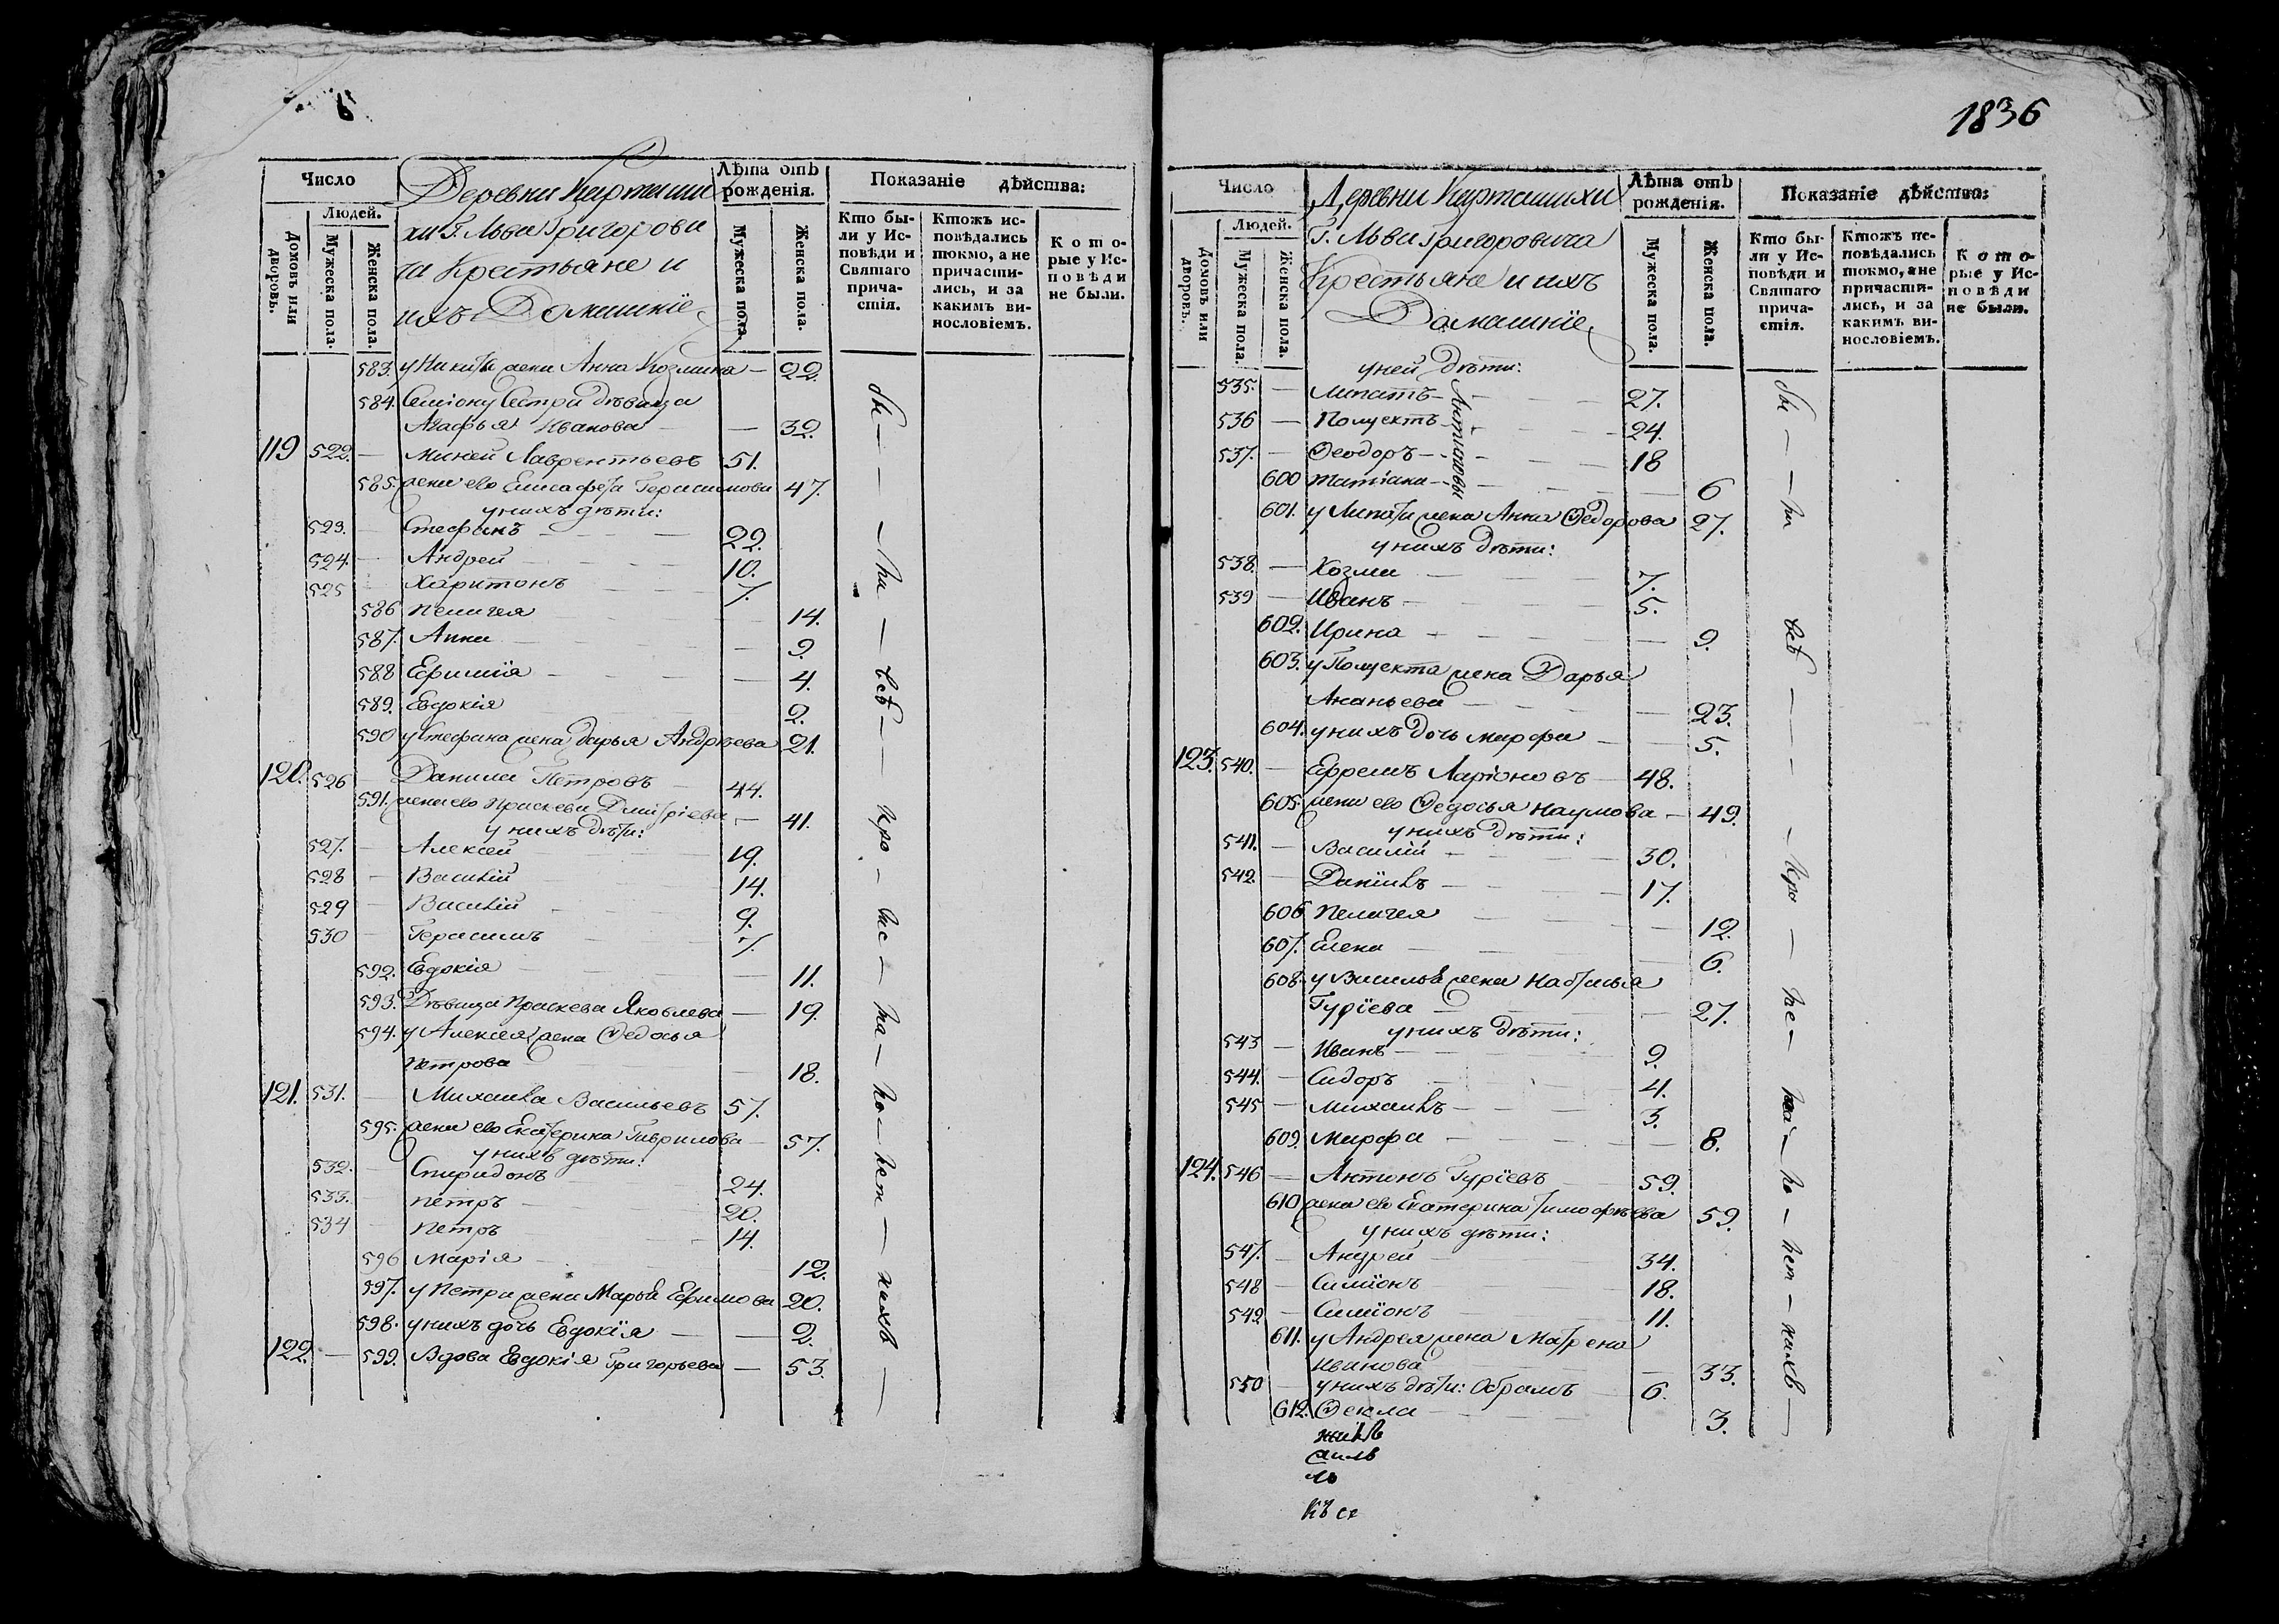 1836
Число
Людей.
Домовъ или дворовъ.
Мужеска пола.
Женска пола.
Деревни Карташи
хи Г. Льва Григорови
ча Крестьяне и
ихъ Домашніе
Лѣта отъ рожденія.
Мужеска пола.
Женска пола.
Показаніе дѣйства:
Кто бы-
ли у Ис-
повѣди и
Святаго
прича-
стія.
Ктожъ ис-
повѣдались
токмо, а не
причасти-
лись, и за
какимъ ви-
нословіемъ.
К о т о-
рые у Ис-
п о в ѣ д и
не были.
583. у Никиты жена Анна Козмина — 22.
584. Симіону Сестра дѣвица
Агафья Иванова — 32.
119 522. — Миней Лаврентьевъ 51.
585. жена ево Елисафета Герасимова 47.
у нихъ дѣти:
523. — Стефанъ — 22.
524. — Андрей 10.
525 Харитонъ 7.
586 Пелагея 14.
587. Анна 9.
588 Ефимія 4.
589. Евдокія 2.
590 у Стефана жена Дарья Андрѣева 21.
120. 526 — Данила Петровъ 44.
591. жена ево Праскева Дмитріева — 41.
у нихъ дѣти:
527. — Алексей 19.
528 — Василій 14.
529 — Василій 9.
530 — Герасимъ 7.
592. Евдокія — 11.
593. Дѣвица Праскева Яковлева — 19.
594. у Алексея жена Ѳедосья
Петрова — 18.
121. 531. — Михаила Васильевъ 57.
595. жена ево Екатерина Гаврилова — 57.
у нихъ дѣти:
532. — Спиридонъ 24.
533. — Петръ 20.
534 — Петръ 14.
596 Марія 12.
597. у Петра жена Марья Ефимова 20.
598. у нихъ дочь Евдокія — 2.
122. — 599. Вдова Евдокія Григорьева — 53.
Число
Людей.
Домовъ или дворовъ.
Мужеска пола.
Женска пола.
Деревни Карташихи
Г. Льва Григоровича
Крестьяне и ихъ
Домашніе
Лѣта отъ рожденія.
Мужеска пола.
Женска пола.
Показаніе дѣйства:
Кто бы-
ли у Ис-
повѣди и
Святаго
прича-
стія.
Ктожъ ис-
повѣдались
токмо, а не
причасти-
лись, и за
какимъ ви-
нословіемъ.
К о т о-
рые у Ис-
п о в ѣ д и
не были.
у ней дѣти:
535. — Липатъ 27.
536 — Полуектъ 24.
537. — Ѳеодоръ 18
600 Татіана — 6
Антиповы
601. у Липата жена Анна Ѳедорова 27.
у нихъ дѣти:
538. — Козма 7.
539 — Иванъ 5.
602. Ирина — 9.
603. у Полуекта жена Дарья
Ананьева — 23.
604. у нихъ дочь Марфа — 5.
123. 540. — Ефремъ Ларіоновъ — 48.
605. жена ево Ѳедосья Наумова — 49.
у нихъ дѣти:
541. — Василій 30.
542. — Данiилъ 17.
606 Пелагея — 12.
607. Елена — 6.
608. у Василья жена Настасья
Гурїева — 27.
у нихъ дѣти:
543 — Иванъ 9.
544. — Сидоръ 4.
545 — Михаилъ 3.
609. Марфа — 8.
124. 546 — Антонъ Гурїевъ 59.
610 жена ево Екатерина Тимофѣева 59.
у нихъ дѣти:
547. — Андрей 34.
548 — Симїонъ 18.
549. — Симїонъ 11.
611. у Андрея жена Матрена
Иванова — 33.
550 — у нихъ дѣти: Обрамъ 6.
612. Ѳекла — 3.